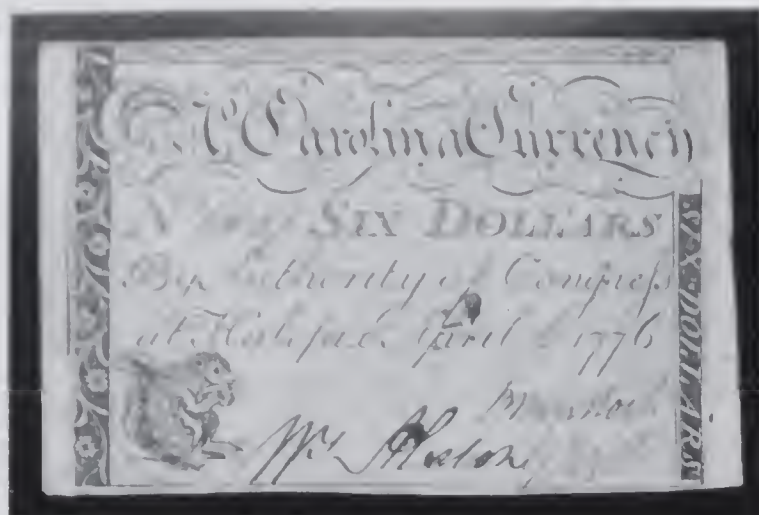 N. Carolina Currency
SIX DOLLARS
By Authority of Congress
at Halifax April 1776
SIX-DOLLARS